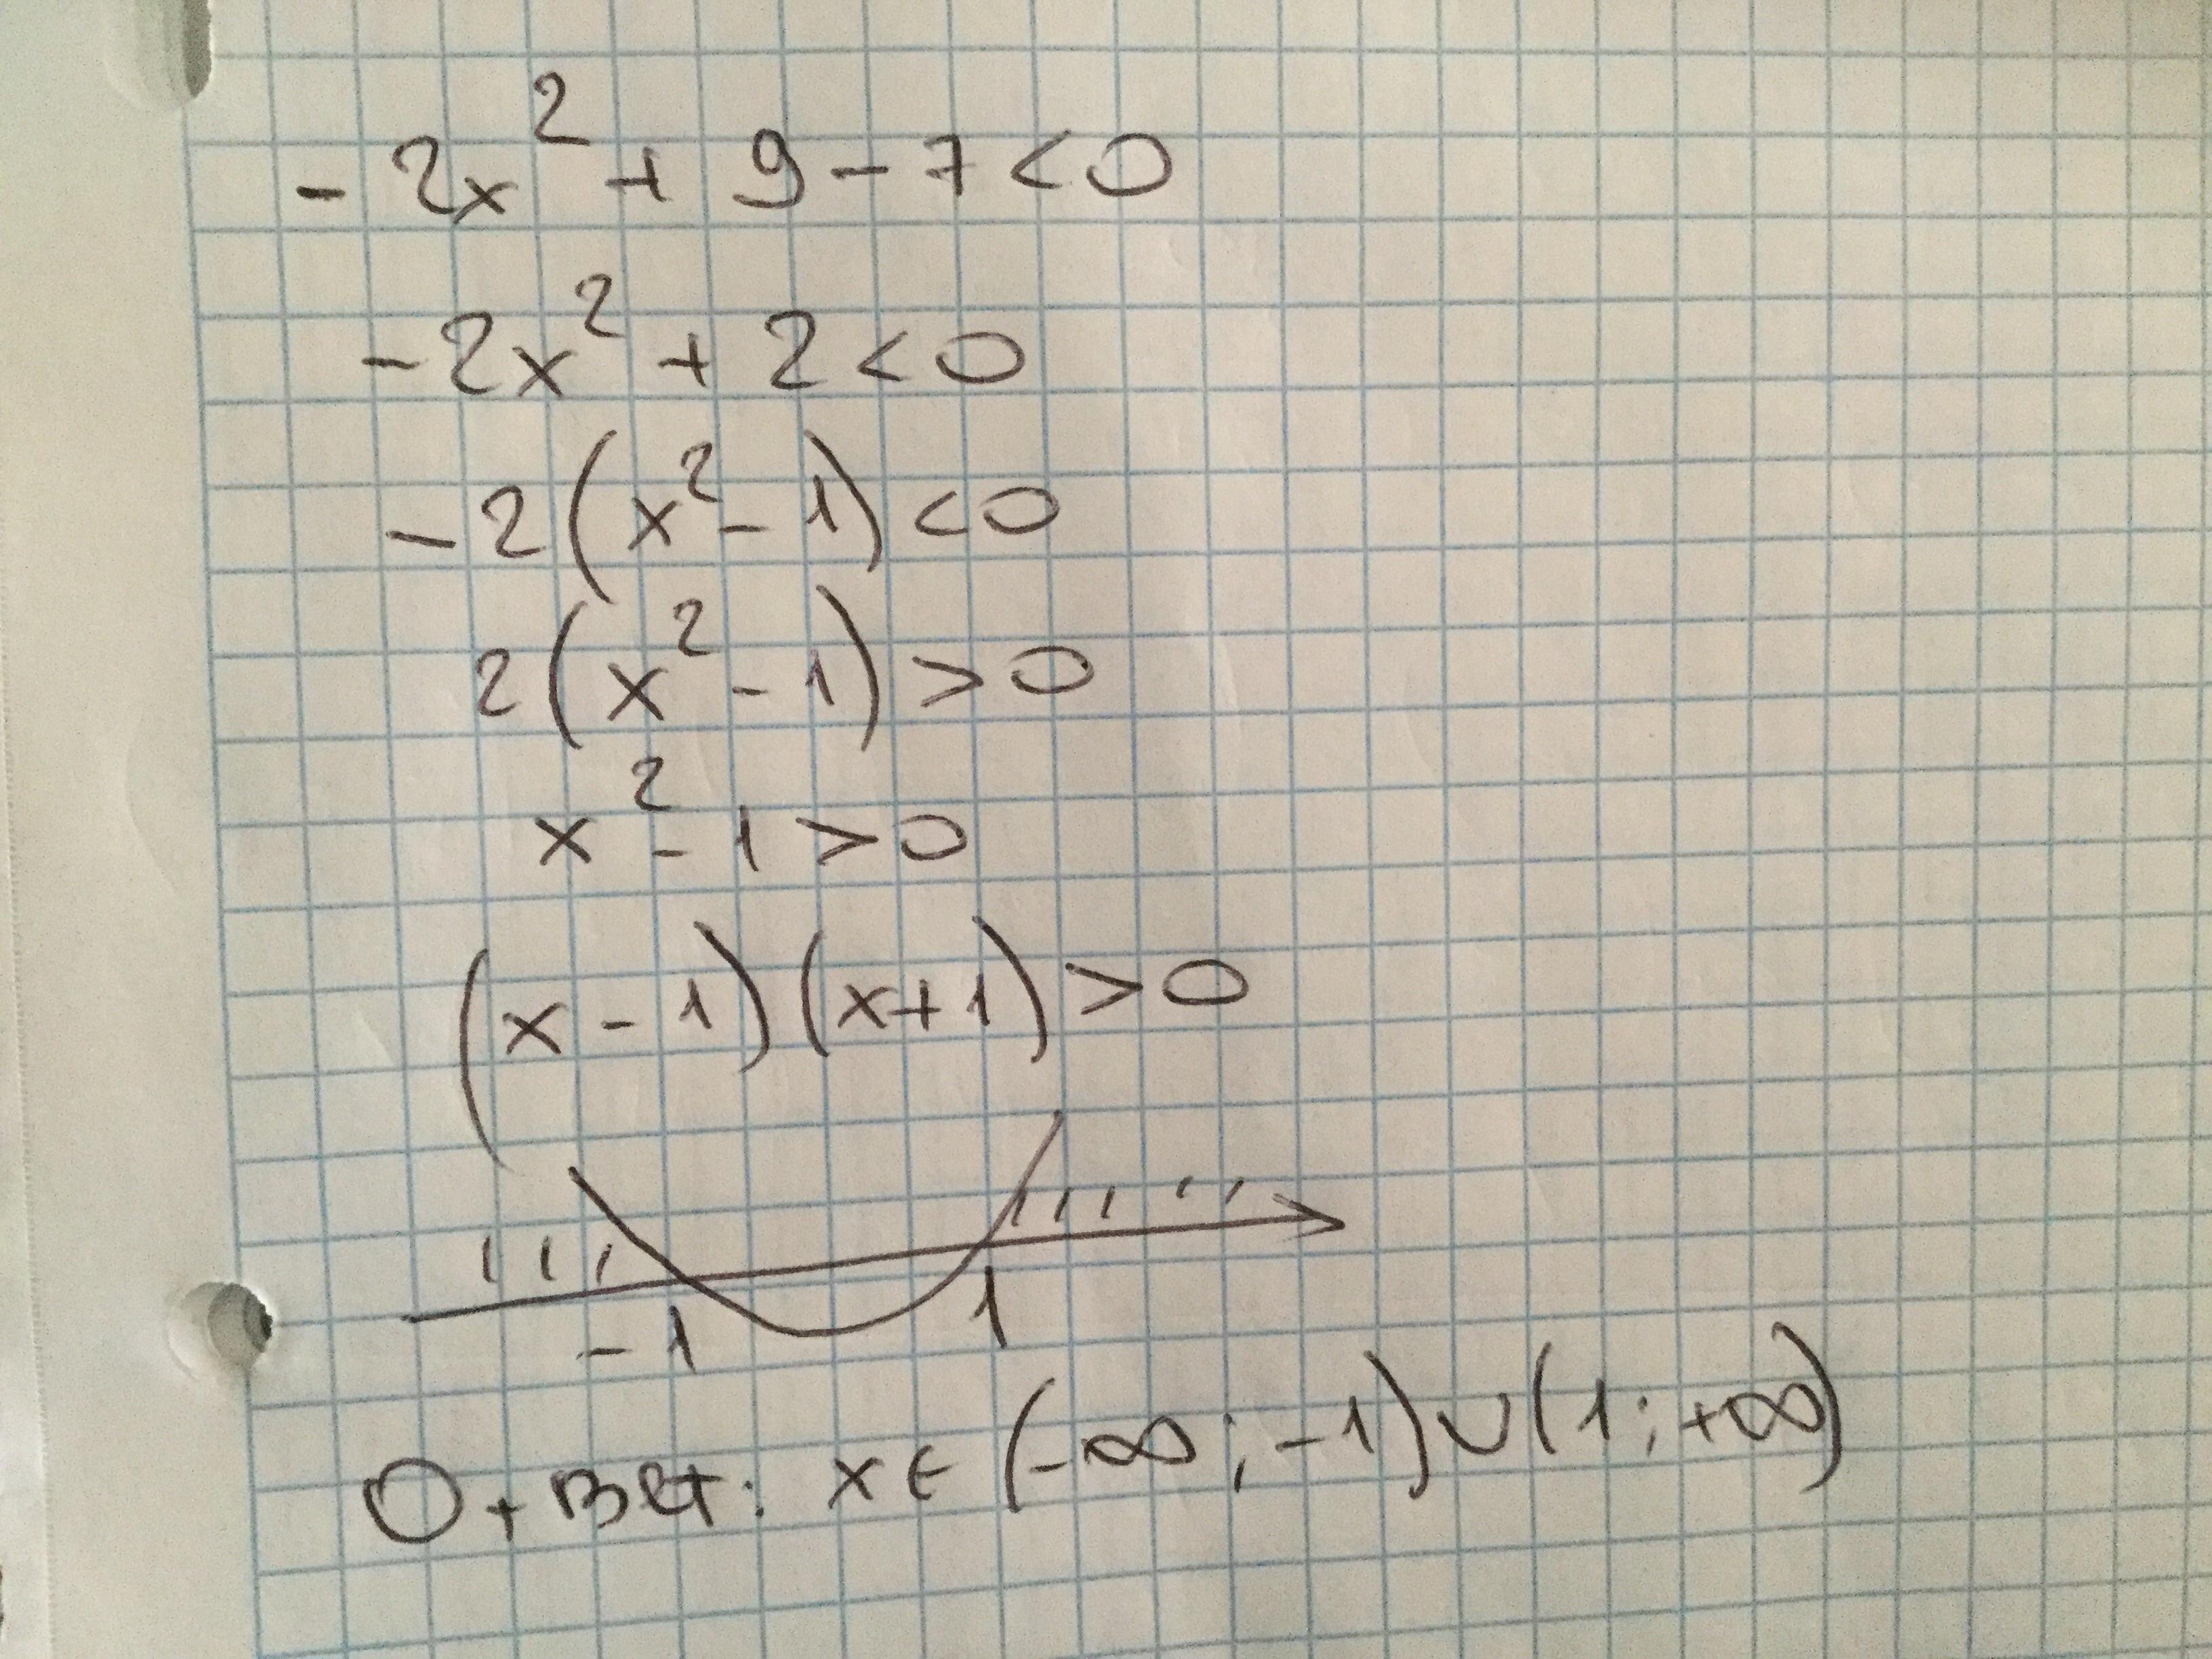 -2x² + 9 - 7 < 0
-2x² + 2 < 0
-2(x² - 1) < 0
2(x² - 1) > 0
x² - 1 > 0
(x - 1)(x + 1) > 0
-1 1
Ответ: x ∈ (-∞; -1) ∪ (1; +∞)